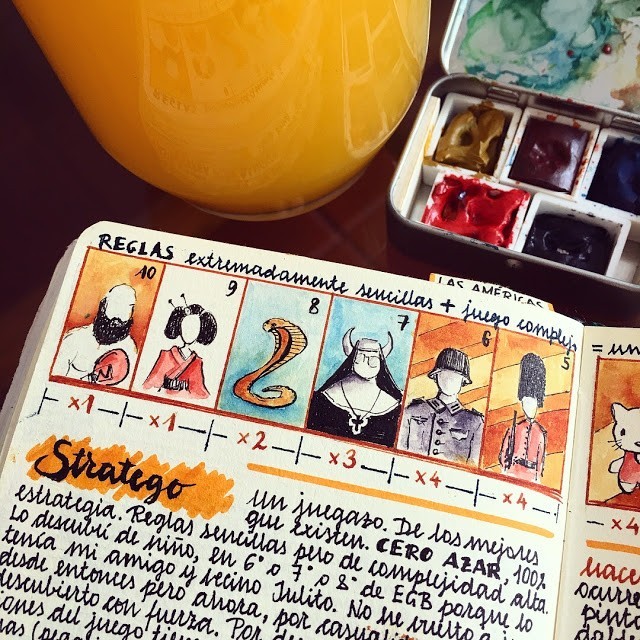 LAS AMÉRICAS
REGLAS extremadamente sencillas + juego complejo
= un
10 9 8 7 6 5
x1 x1 x2 x3 x4 x4
x4
Stratego
un juegazo. De los mejores
que existen. CERO AZAR, 100%
estrategia. Reglas sencillas pero de complejidad alta.
Lo descubrí de niño, en 6º o 7º o 8º de EGB porque lo
tenía mi amigo y vecino Julito. No he vuelto a
desde entonces pero ahora, por
descubierto con fuerza. Por
del juego
hacer
ocurre